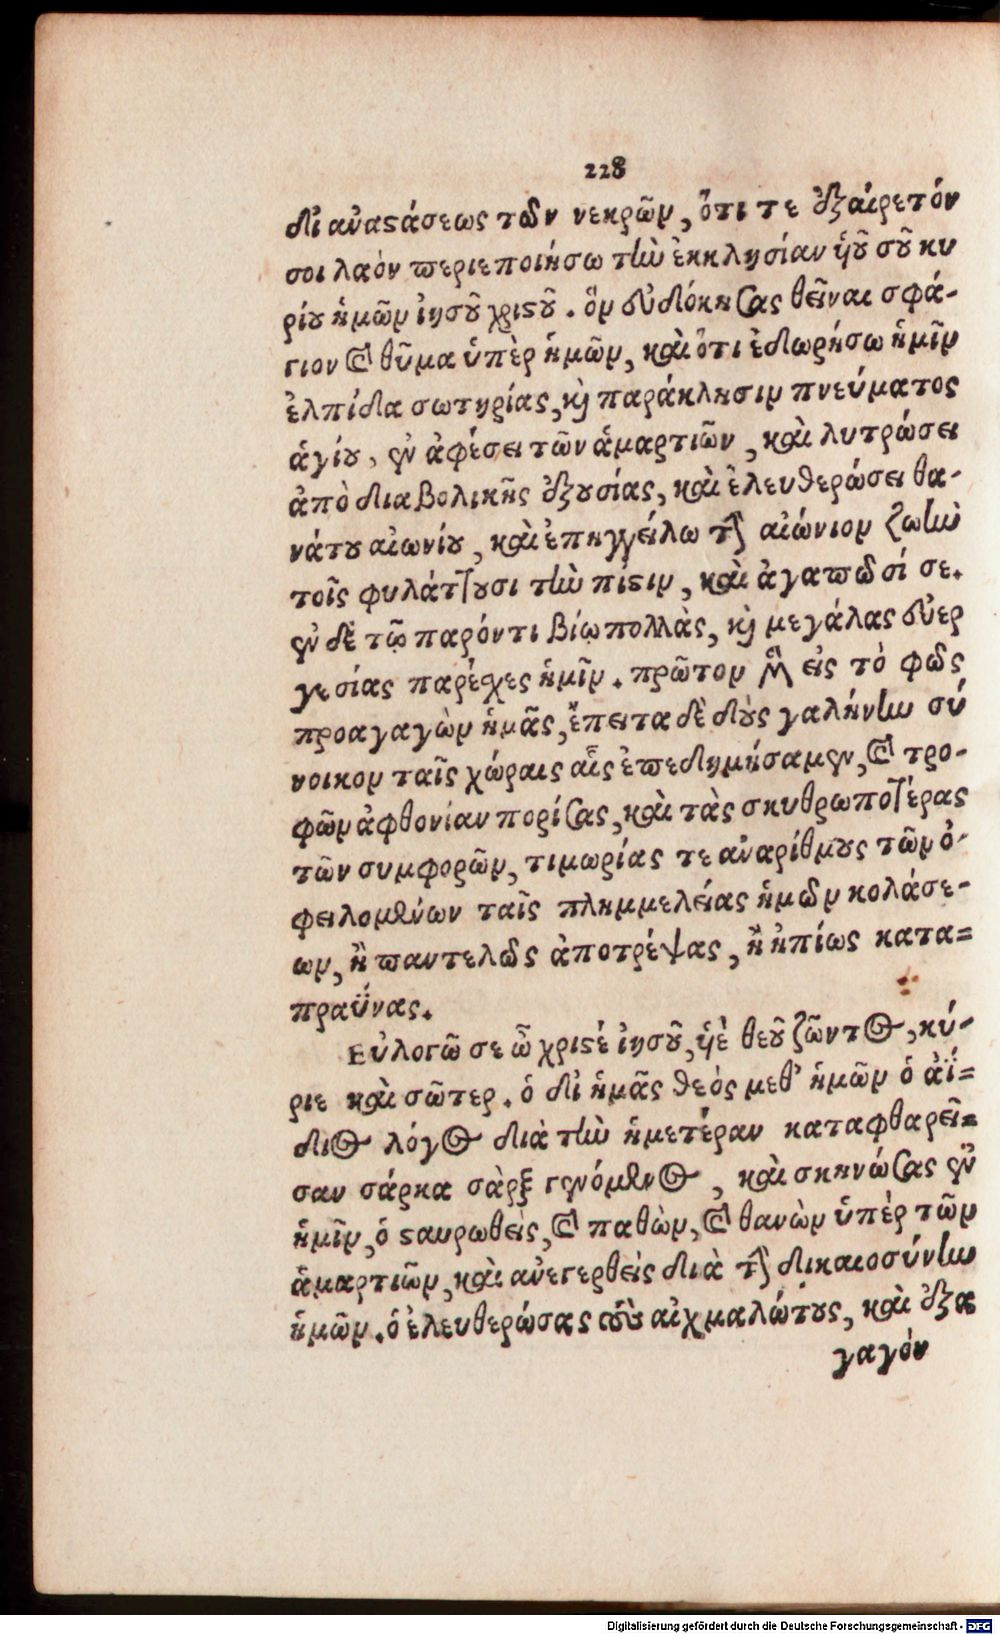 228
δι' ἀναστάσεως τῶν νεκρῶν, ὅτι τε ἐξαίρετόν
σοι λαὸν περιεποιήσω τὴν ἐκκλησίαν ὑοῦ σοῦ κυ
ρίου ἡμῶν ἰησοῦ χριστοῦ. ὃν εὐδόκησας θεῖναι σφά-
γιον καὶ θῦμα ὑπὲρ ἡμῶν, καὶ ὅτι ἐδωρήσω ἡμῖν
ἐλπίδα σωτηρίας, καὶ παράκλησιν πνεύματος
ἁγίου, ἐν ἀφέσει τῶν ἁμαρτιῶν, καὶ λυτρώσει
ἀπὸ διαβολικῆς ἐξουσίας, καὶ ἐλευθερώσει θα-
νάτου αἰωνίου, καὶ ἐπηγγείλω τὴν αἰώνιον ζωὴν
τοῖς φυλάττουσι τὴν πίστιν, καὶ ἀγαπῶσί σε.
ἐν δὲ τῷ παρόντι βίῳ πολλὰς, καὶ μεγάλας εὐερ
γεσίας παρέχες ἡμῖν. πρῶτον μὲν εἰς τὸ φῶς
προαγαγὼν ἡμᾶς, ἔπειτα δὲ δοὺς γαλήνην σύ
νοικον ταῖς χώραις αἷς ἐπεδημήσαμεν, καὶ τρο-
φῶν ἀφθονίαν πορίσας, καὶ τὰς σκυθρωποτέρας
τῶν συμφορῶν, τιμωρίας τε ἀναρίθμους τῶν ὀ-
φειλομένων ταῖς πλημμελείας ἡμῶν κολάσε-
ων, ἢ παντελῶς ἀποτρέψας, ἢ ἠπίως κατα=
πραΰνας.
Εὐλογῶ σε ὦ χριστέ ἰησοῦ, ὑὲ θεοῦ ζῶντος, κύ-
ριε καὶ σῶτερ. ὁ δι' ἡμᾶς θεὸς μεθ' ἡμῶν ὁ ἀΐ=
διος λόγος διὰ τὴν ἡμετέραν καταφθαρεῖ=
σαν σάρκα σὰρξ γενόμενος, καὶ σκηνώσας ἐν
ἡμῖν, ὁ σταυρωθεὶς, καὶ παθὼν, καὶ θανὼν ὑπὲρ τῶν
ἁμαρτιῶν, καὶ ἀνεγερθεὶς διὰ τὴν δικαιοσύνην
ἡμῶν. ὁ ἐλευθερώσας τοὺς αἰχμαλώτους, καὶ ἐξα
γαγὸν
Digitalisierung gefördert durch die Deutsche Forschungsgemeinschaft - DFG